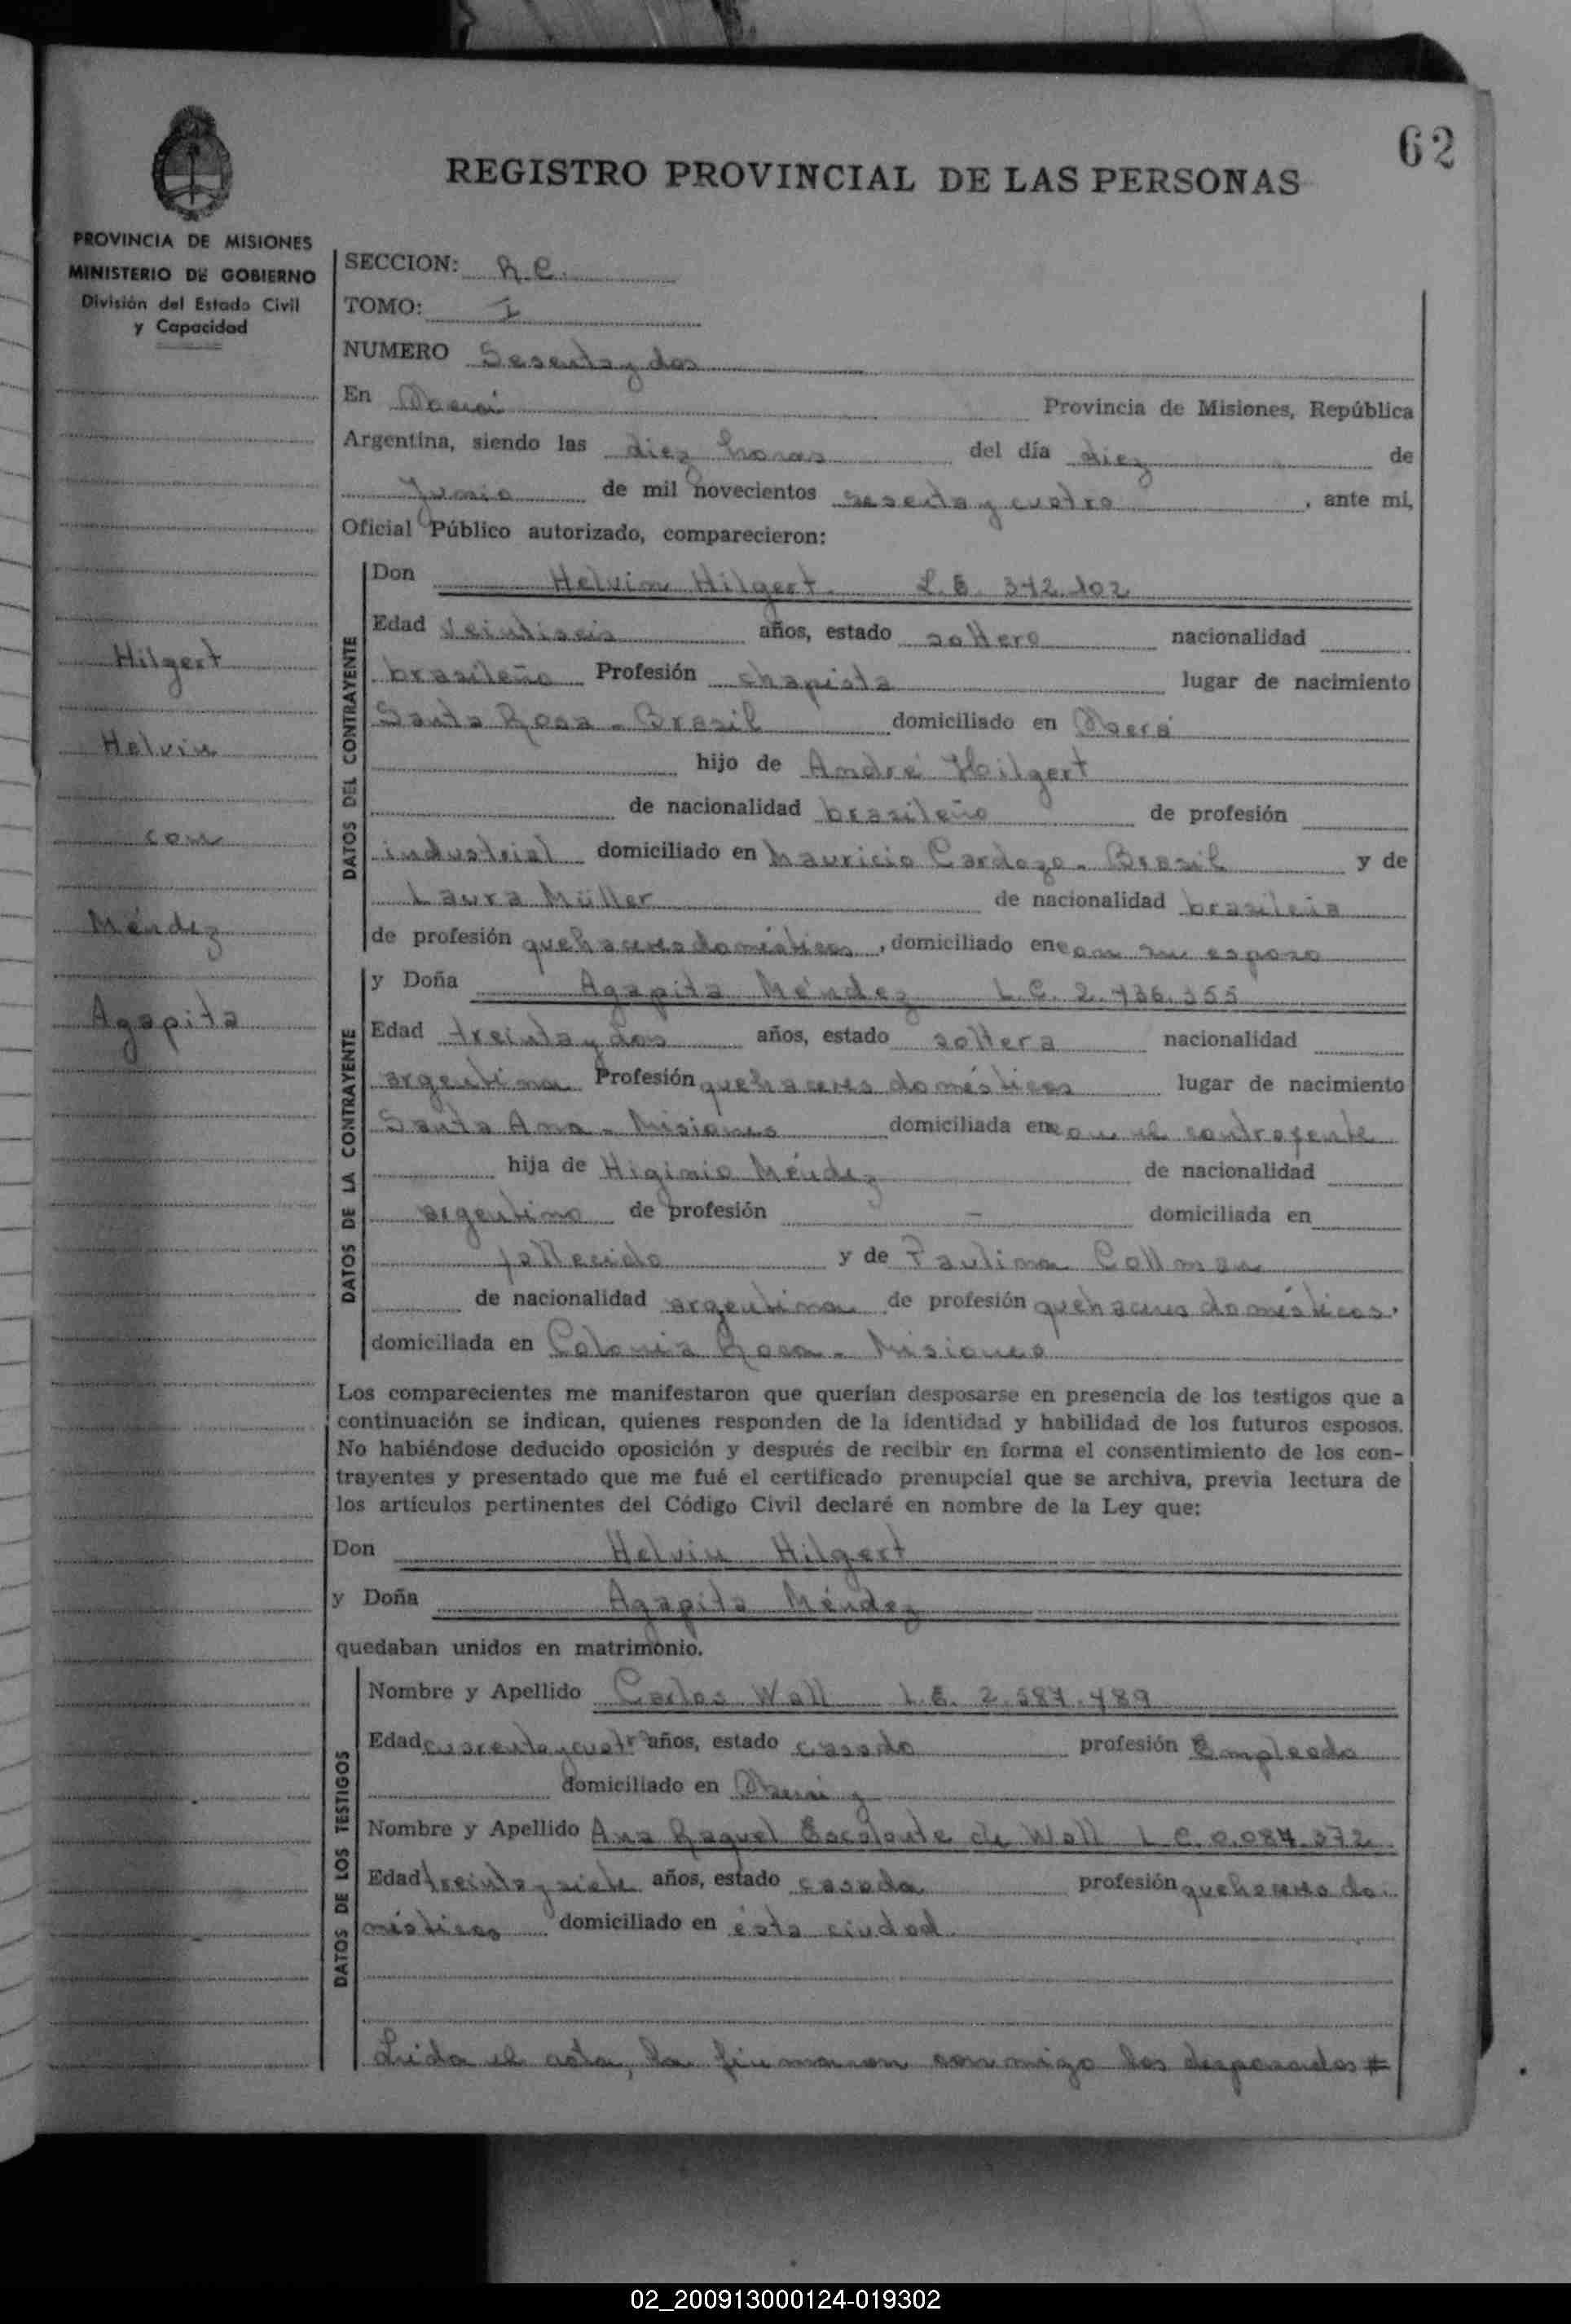 62
REGISTRO PROVINCIAL DE LAS PERSONAS
PROVINCIA DE MISIONES
MINISTERIO DE GOBIERNO
División del Estado Civil
y Capacidad
Hilgert
Helvin
con
Méndez
Agapita
SECCION: R.C.
TOMO: I
NUMERO Sesenta y dos
En Oberá Provincia de Misiones, República
Argentina, siendo las diez horas del día diez de
Junio de mil novecientos sesenta y cuatro, ante mi,
Oficial Público autorizado, comparecieron:
DATOS DEL CONTRAYENTE
Don Helvin Hilgert L.E. 372.102
Edad veintiseis años, estado soltero nacionalidad
brasileño Profesión chapista lugar de nacimiento
Santa Rosa - Brasil domiciliado en Oberá
hijo de André Hilgert
de nacionalidad brasileño de profesión
industrial domiciliado en Mauricio Cardozo - Brasil y de
Laura Müller de nacionalidad brasileña
de profesión quehaceres domésticos, domiciliado en con su esposo
DATOS DE LA CONTRAYENTE
y Doña Agapita Méndez L.C. 2.736.355
Edad treinta y dos años, estado soltera nacionalidad
argentina Profesión quehaceres domésticos lugar de nacimiento
Santa Ana - Misiones domiciliada en con el contrayente
hija de Higinio Méndez de nacionalidad
argentino de profesión - domiciliada en
fallecido y de Paulina Collman
de nacionalidad argentina de profesión quehaceres domésticos,
domiciliada en Colonia Roca - Misiones
Los comparecientes me manifestaron que querían desposarse en presencia de los testigos que a
continuación se indican, quienes responden de la identidad y habilidad de los futuros esposos.
No habiéndose deducido oposición y después de recibir en forma el consentimiento de los con-
trayentes y presentado que me fué el certificado prenupcial que se archiva, previa lectura de
los artículos pertinentes del Código Civil declaré en nombre de la Ley que:
Don Helvin Hilgert
y Doña Agapita Méndez
quedaban unidos en matrimonio.
DATOS DE LOS TESTIGOS
Nombre y Apellido Carlos Wall L.E. 2.587.489
Edad cuarenta y cuatro años, estado casado profesión Empleado
domiciliado en Oberá y
Nombre y Apellido Ana Raquel Escalante de Wall L.C. 0.087.372
Edad treinta y siete años, estado casada profesión quehaceres do-
mésticos domiciliado en ésta ciudad.
Leida el acta, la firmaron conmigo los desposados #
02_200913000124-019302